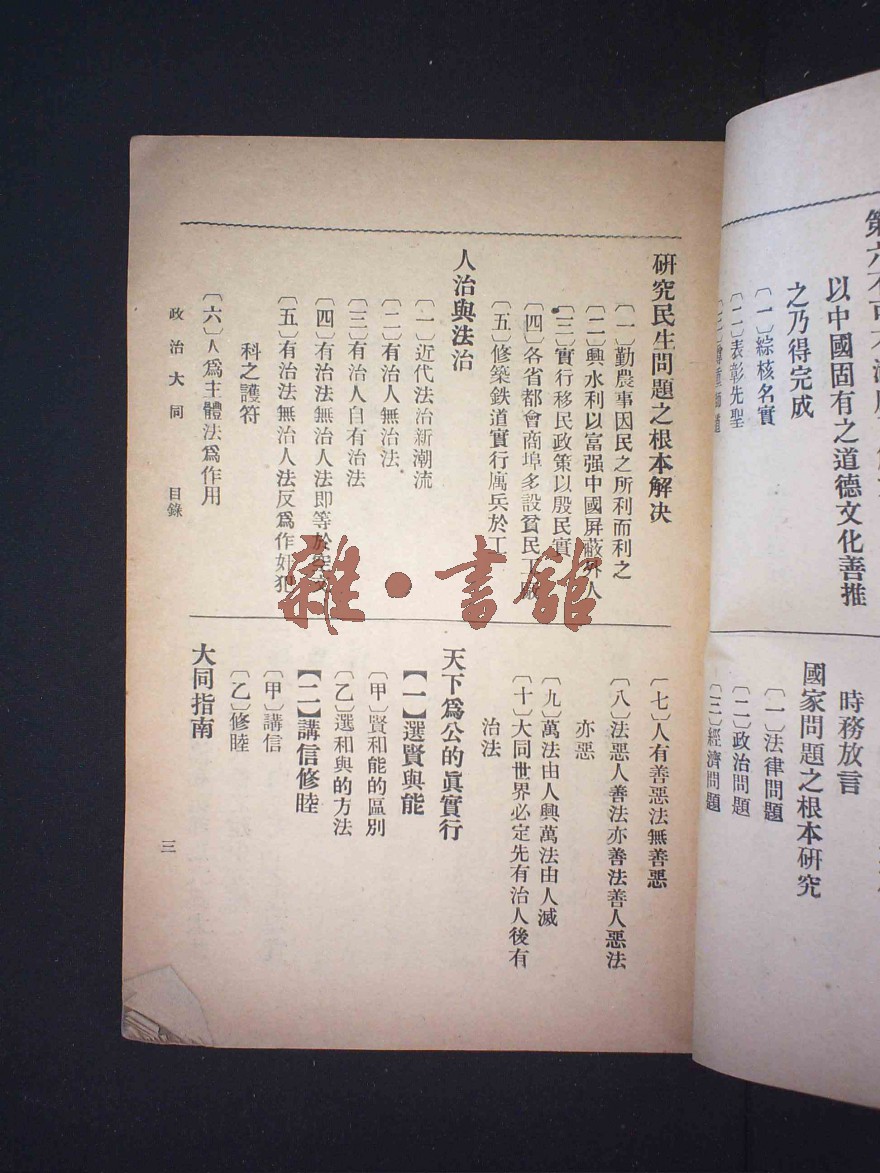 以中國固有之道德文化善推
之乃得完成
〔一〕綜核名實
〔二〕表彰先聖
時務放言
國家問題之根本研究
〔一〕法律問題
〔二〕政治問題
〔三〕經濟問題
研究民生問題之根本解决
〔一〕勤農事因民之所利而利之
〔二〕興水利以富强中國屏蔽外人
〔三〕實行移民政策以殷民實
〔四〕各省都會商埠多設貧民工廠
〔五〕修築鉄道實行寓兵於工
人治與法治
〔一〕近代法治新潮流
〔二〕有治人無治法
〔三〕有治人自有治法
〔四〕有治法無治人法即等於
〔五〕有治法無治人法反爲作奸犯
科之護符
〔六〕人爲主體法爲作用
〔七〕人有善惡法無善惡
〔八〕法惡人善法亦善法善人惡法
亦惡
〔九〕萬法由人興萬法由人滅
〔十〕大同世界必定先有治人後有
治法
天下爲公的眞實行
【一】選賢與能
〔甲〕賢和能的區別
〔乙〕選和與的方法
【二】講信修睦
〔甲〕講信
〔乙〕修睦
大同指南
政治大同 目錄
三
雜·書館